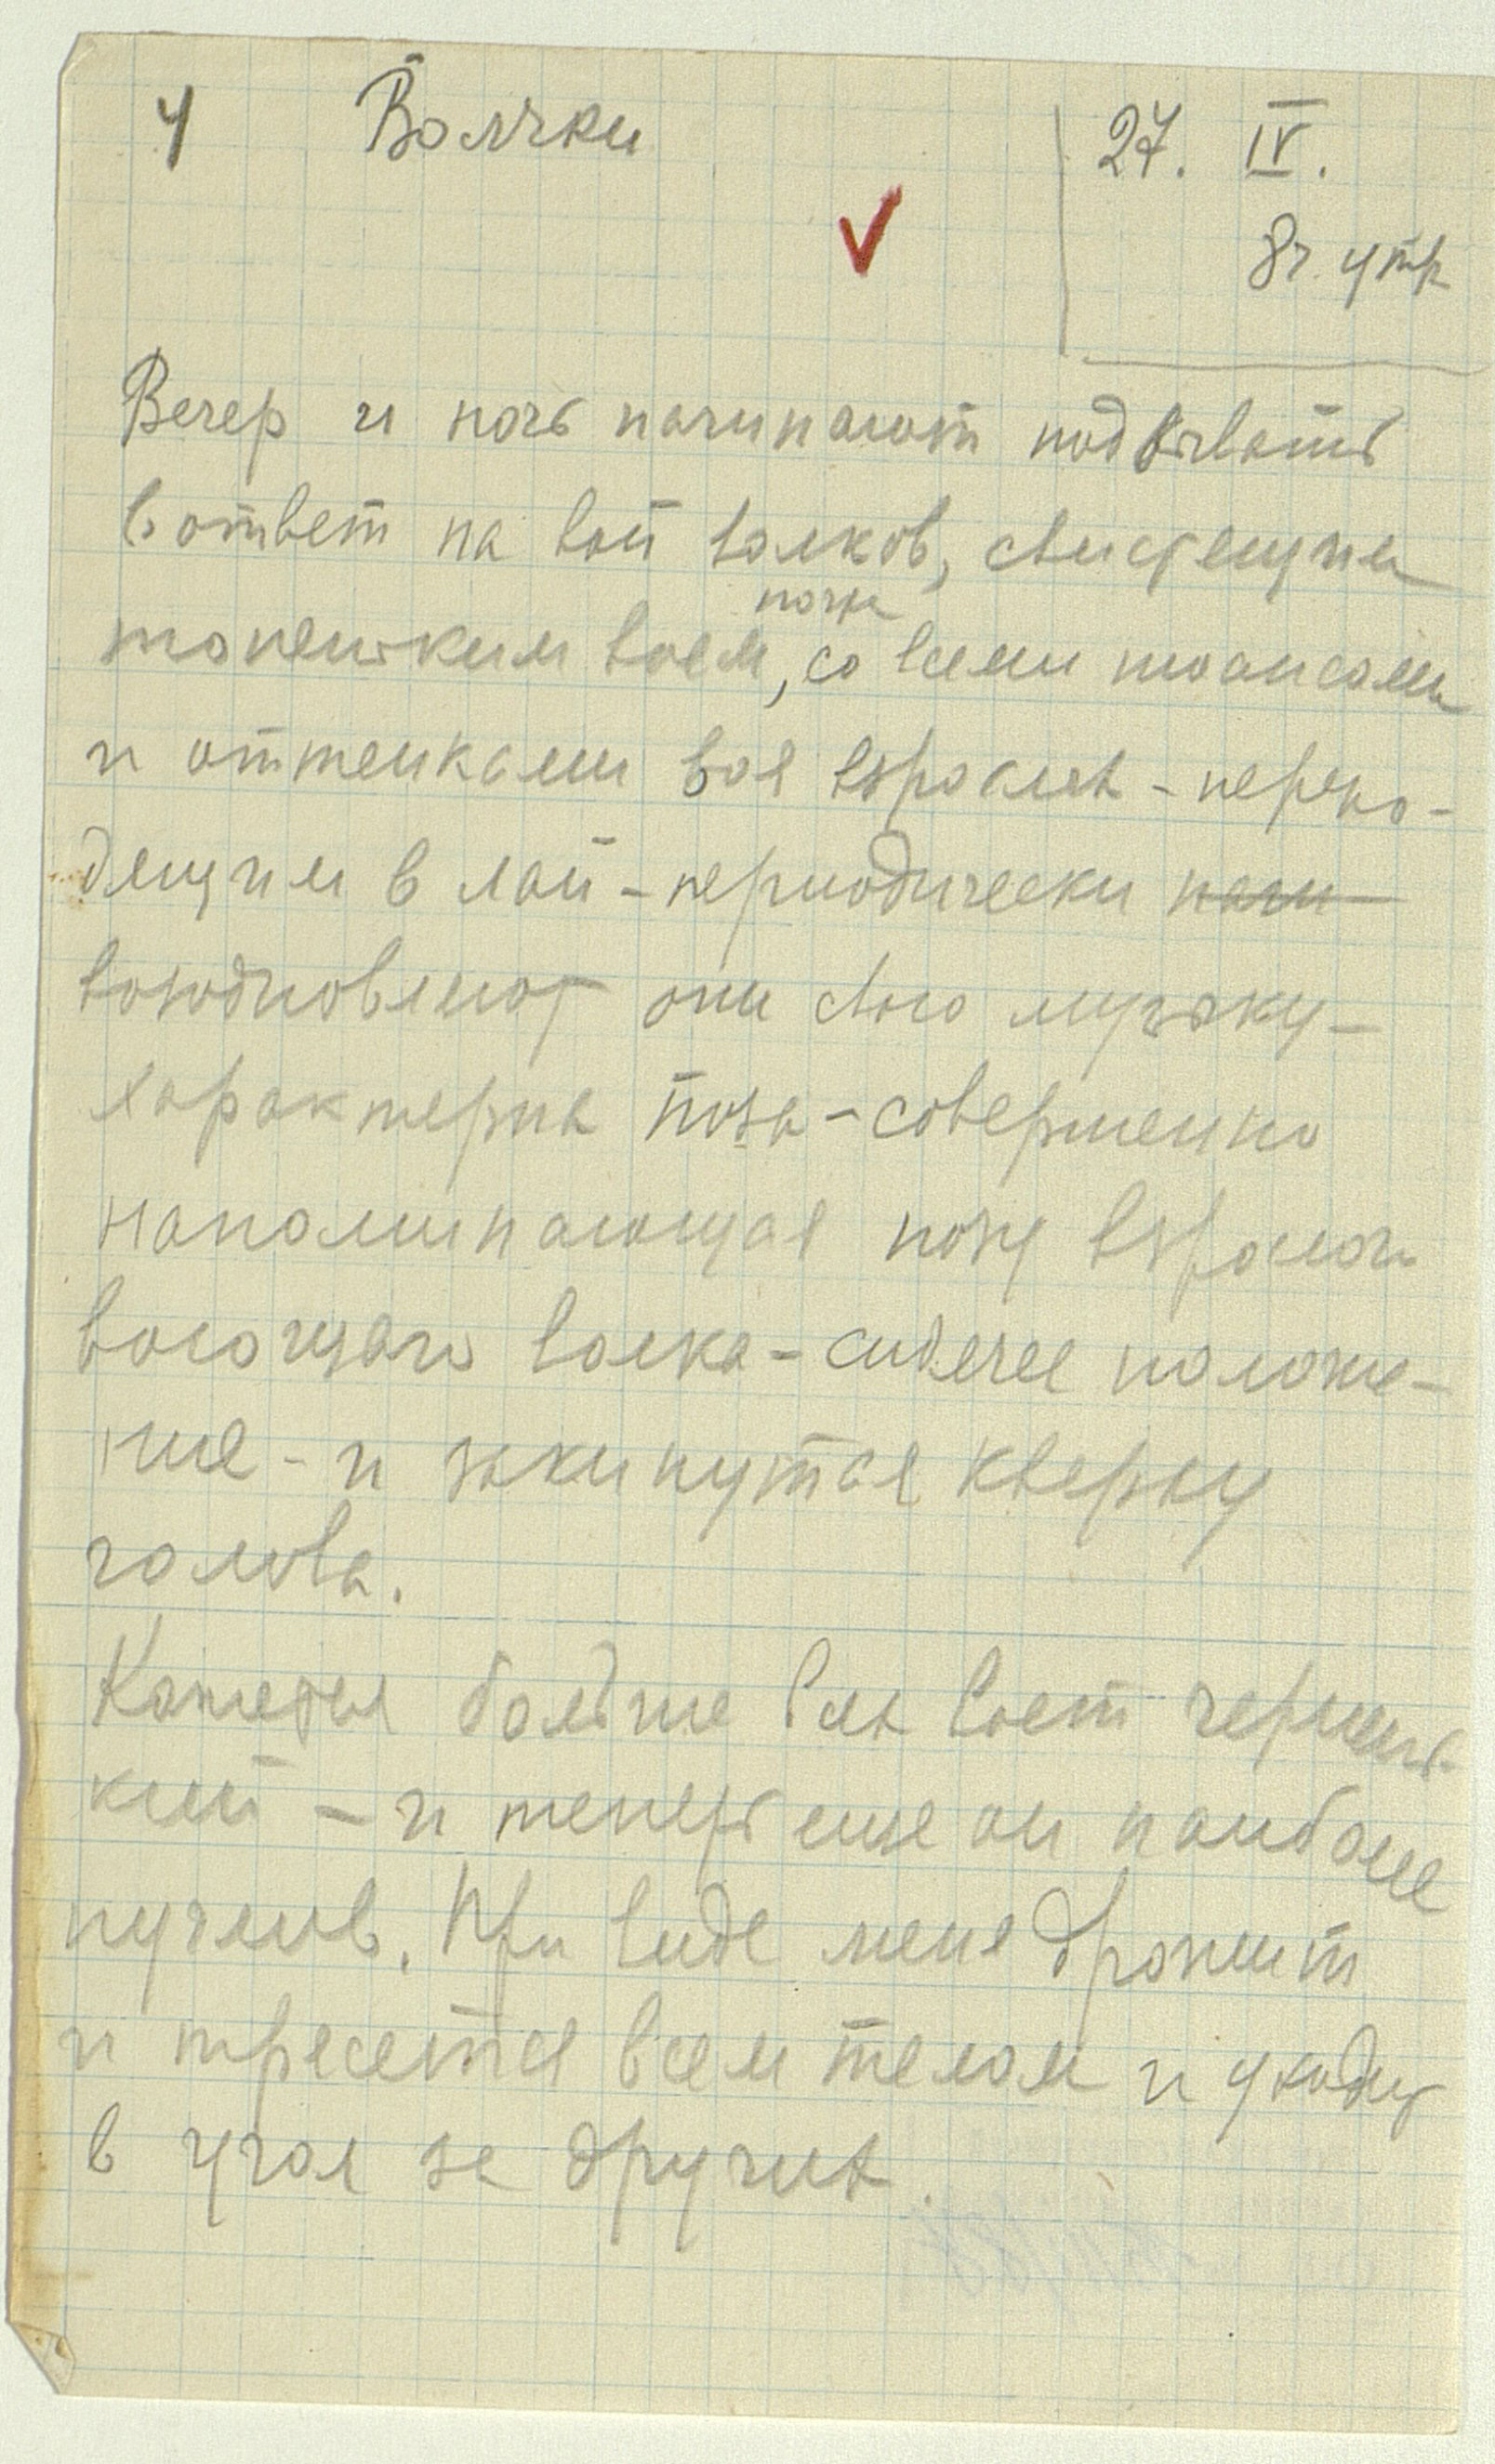 4 Волчки
27. IV.
8 ч. утр
Вечер и ночь начинают подвывать
в ответ на вой волков, свистящим
тонешким воем, со всеми нюансами
и оттенками воя взрослых - перехо-
дящим в лай - периодически начи
возобновляют они свою музыку -
характерна поза - совершенно
напоминающая позу взрослого
воющаго волка - сидячее положе-
ние - и закинутая кверху
голова.
больше всех воет чернень-
кий - и теперь еще он наиболее
пуглив. При виде меня дрожит
и трясется всем телом и уходит
в угол за других.